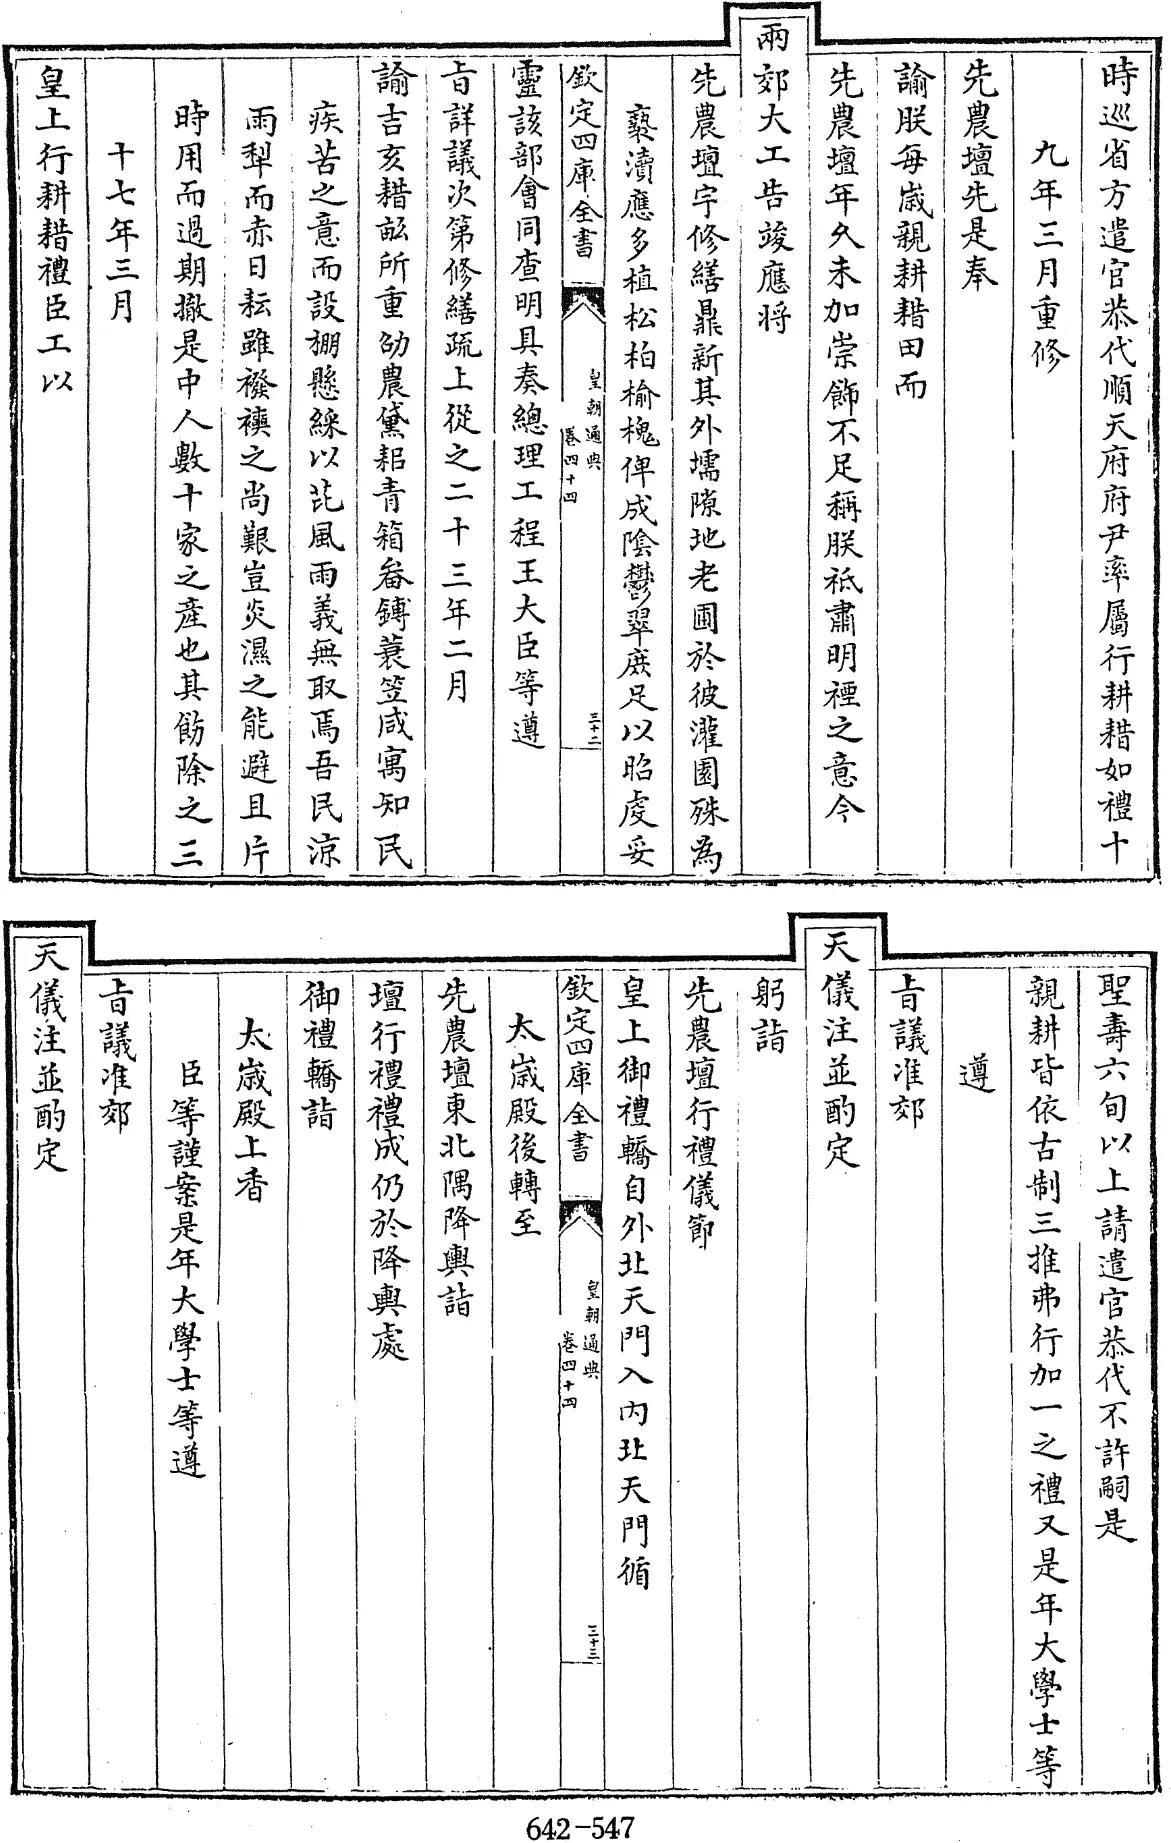 時巡省方遣官恭代順天府府尹率屬行耕耤如禮十
九年三月重修
先農壇先是奉
諭朕每歲親耕耤田而
先農壇年久未加崇飾不足稱朕祗肅明禋之意今
兩郊大工告竣應將
先農壇宇修繕鼎新其外壖隙地老圃於彼灌園殊為
褻瀆應多植松柏榆槐俾成陰鬱翠庶足以昭虔妥
欽定四庫全書
皇朝通典
卷四十四
三十二
靈該部會同查明具奏總理工程王大臣等遵
旨詳議次第修繕疏上從之二十三年二月
諭吉亥耤畝所重劭農黛耜青箱畚鎛蓑笠咸寓知民
疾苦之意而設棚懸綵以芘風雨義無取焉吾民涼
雨犁而赤日耘雖襏襫之尚艱豈炎濕之能避且片
時用而過期撤是中人數十家之產也其飭除之三
十七年三月
皇上行耕耤禮臣工以
聖壽六旬以上請遣官恭代不許嗣是
親耕皆依古制三推弗行加一之禮又是年大學士等
遵
旨議准郊
天儀注並酌定
躬詣
先農壇行禮儀節
皇上御禮轎自外北天門入內北天門循
欽定四庫全書
皇朝通典
卷四十四
三十三
太歲殿後轉至
先農壇東北隅降輿詣
壇行禮禮成仍於降輿處
御禮轎詣
太歲殿上香
臣等謹案是年大學士等遵
旨議准郊
天儀注並酌定
642-547